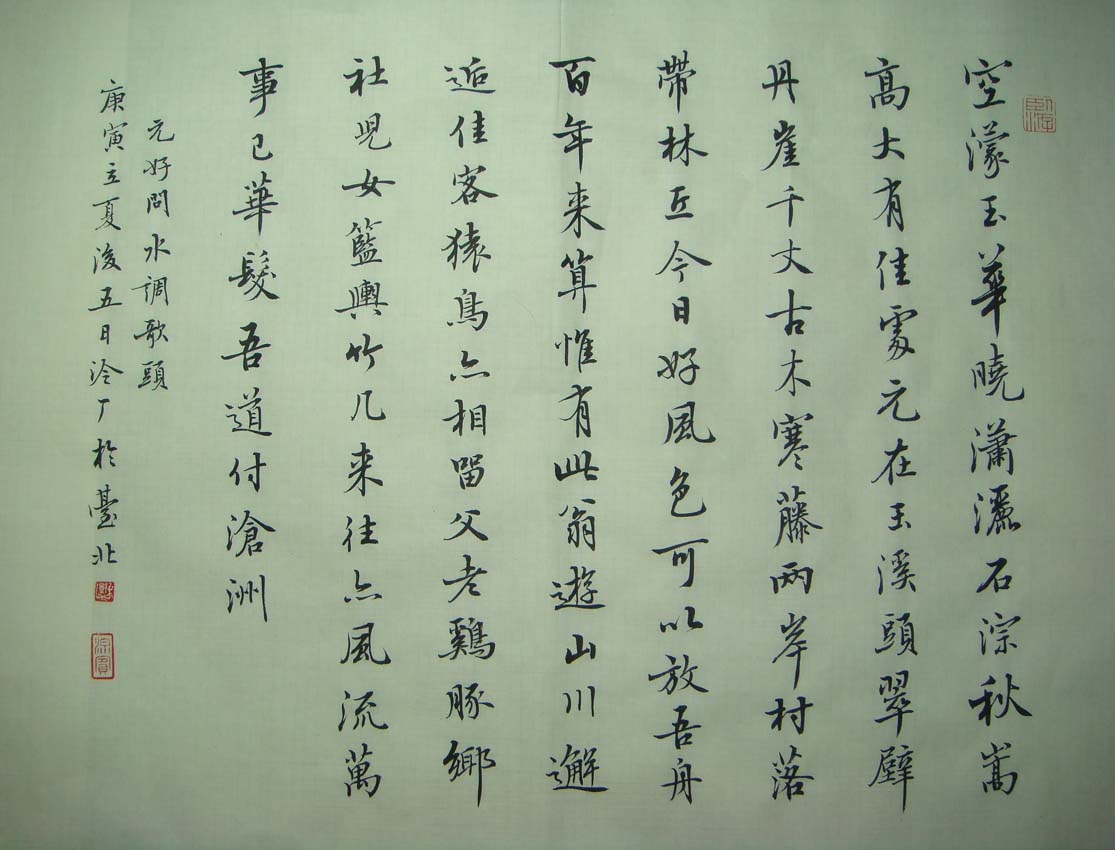 空濛玉華曉瀟灑石淙秋嵩
高大有佳處元在玉溪頭翠壁
丹崖千丈古木寒藤兩岸村落
帶林丘今日好風色可以放吾舟
百年来算惟有此翁遊山川邂
逅佳客猿鳥亦相留父老鷄豚鄉
社兒女籃輿竹几来往亦風流萬
事已華髮吾道付滄洲
元好問水調歌頭
庚寅立夏後五日泠厂於臺北